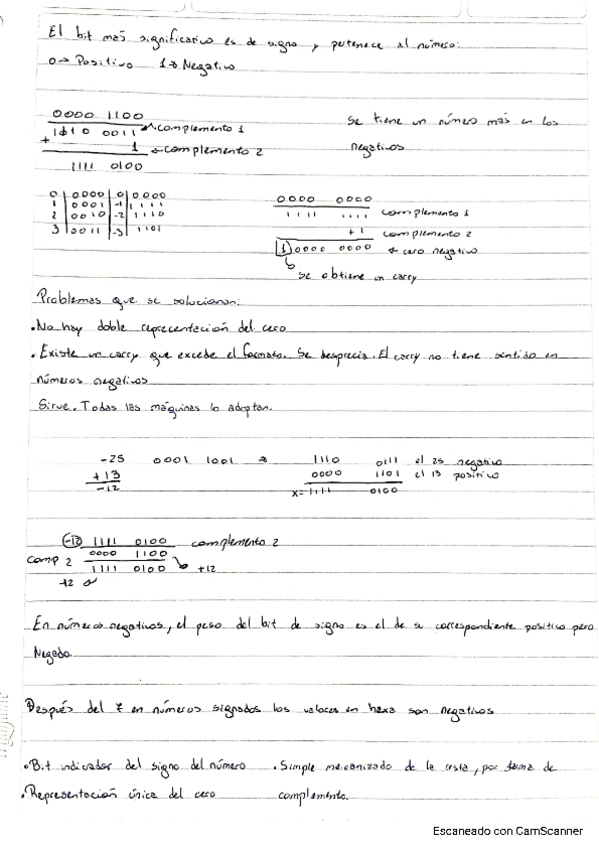 El bit más significativo es de signo y pertenece al número:
0 → Positivo 1 → Negativo
0000 1100
+ 1110 0011 ← complemento 1
1 ← complemento 2
1111 0100
Se tiene un número más en los
negativos
0 | 0000 | 0 | 0000
1 | 0001 | -1 | 1111
2 | 0010 | -2 | 1110
3 | 0011 | -3 | 1101
0000 0000
1111 1111 complemento 1
+1 complemento 2
1 0000 0000 ← cero negativo
Se obtiene un carry
Problemas que se solucionan:
• No hay doble representación del cero
• Existe un carry que excede el formato. Se desprecia. El carry no tiene sentido en
números negativos
Sirve. Todas las máquinas lo adoptan.
-25 0001 1001 → 1110 0111 el 25 negativo
+13 0000 1101 el 13 positivo
-12 x- 1111 0100
-12 1111 0100 complemento 2
comp 2 0000 1100
1111 0100 +12
+12
En números negativos, el peso del bit de signo es el de su correspondiente positivo pero
Negado.
Después del 7 en números signados los valores en hexa son negativos
• Bit indicador del signo del número
• Representación única del cero
• Simple mecanizado de la resta, por toma de
complemento.
Escaneado con CamScanner